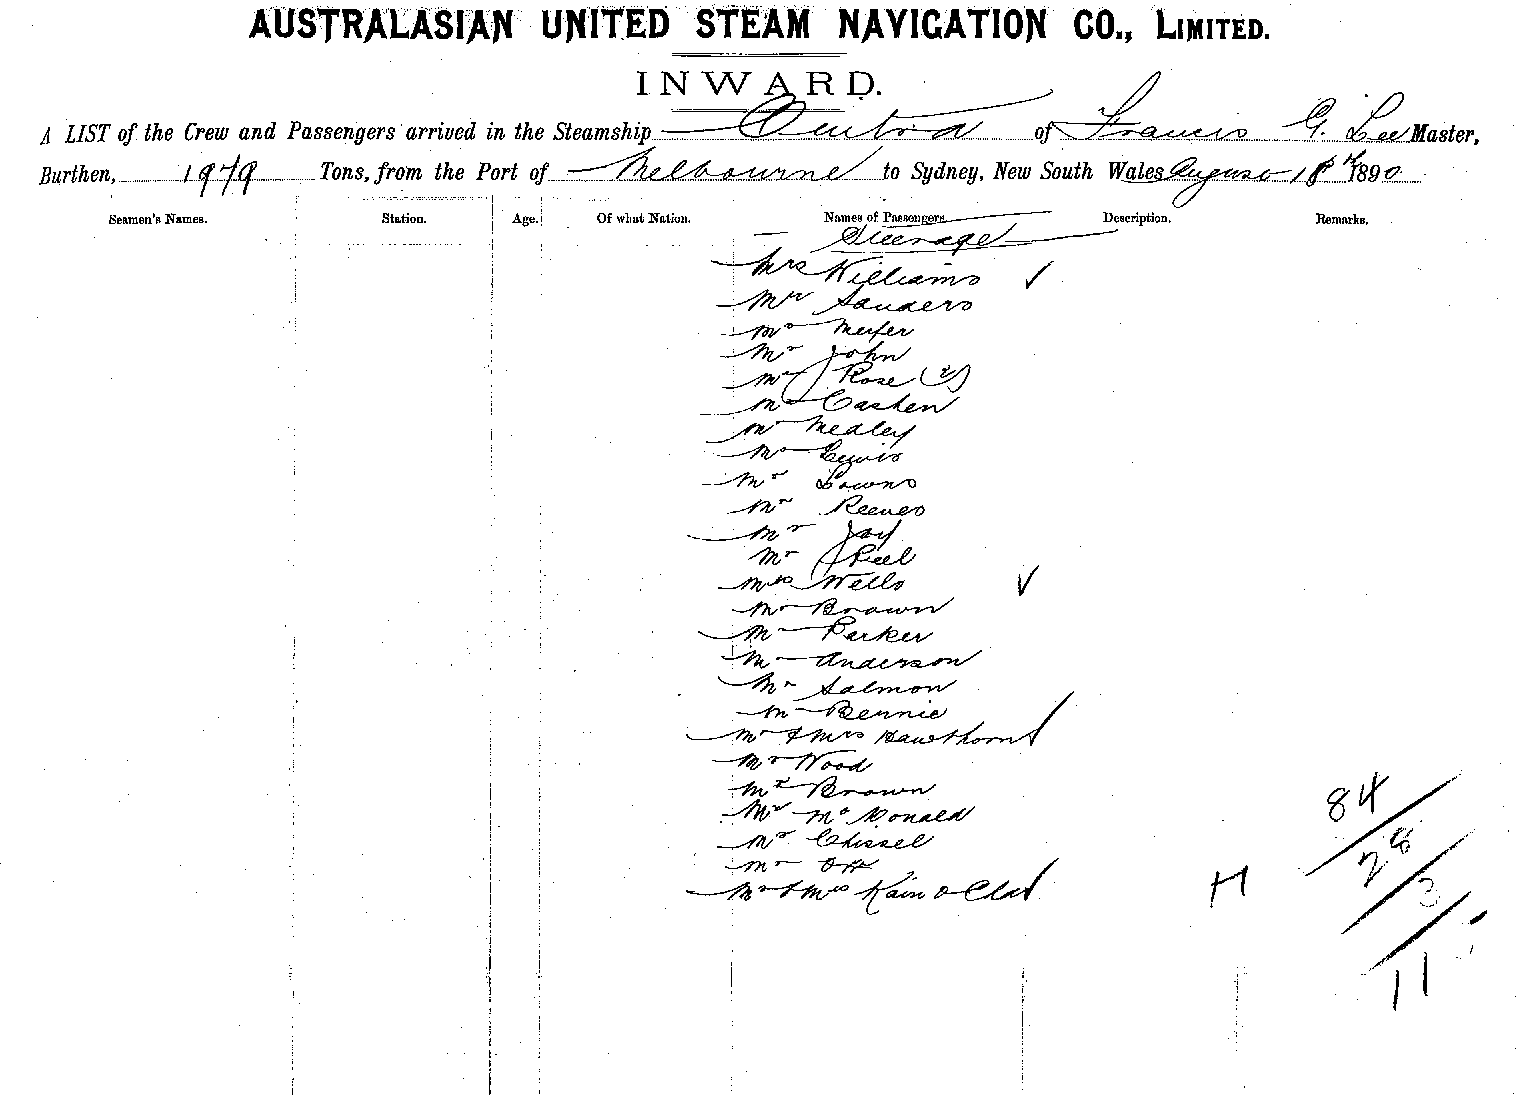 AUSTRALASIAN UNITED STEAM NAVIGATION CO., LIMITED.
INWARD.
A LIST of the Crew and Passengers arrived in the Steamship Cintra of Francis G. Lee Master,
Burthen, 1979 Tons, from the Port of Melbourne to Sydney, New South Wales August 18th 1890
Seamen's Names. Station. Age. Of what Nation. Names of Passengers. Description. Remarks.
Steerage
Mrs Williams ✓
Mr Sanders
Mr
Mr John
Mr Rose (2)
Mr Cashen
Mr Medley
Mr Lewis
Mr Lowns
Mr Reeves
Mr Jay
Mr Peel
Mrs Wells ✓
Mr Brown
Mr Parker
Mr Anderson
Mr Salmon
Mr Rennie
Mr & Mrs Hawthorn ✓
Mr Wood
Mr Brown
Mr McDonald
Mr Chissel
Mr Ott
Mr & Mrs Kain & Chd ✓
84
28
3
11